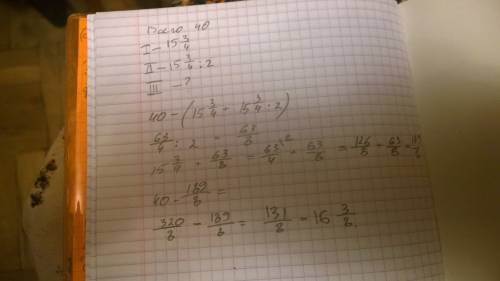 Всего 40
I - 15 3/4
II - 15 3/4 : 2
III - ?
40 - (15 3/4 + 15 3/4 : 2)
63/4 : 2 = 63/8
15 3/4 + 63/8 = 63/4 + 63/8 = 126/8 + 63/8 =
40 - 189/8 =
320/8 - 189/8 = 131/8 = 16 3/8